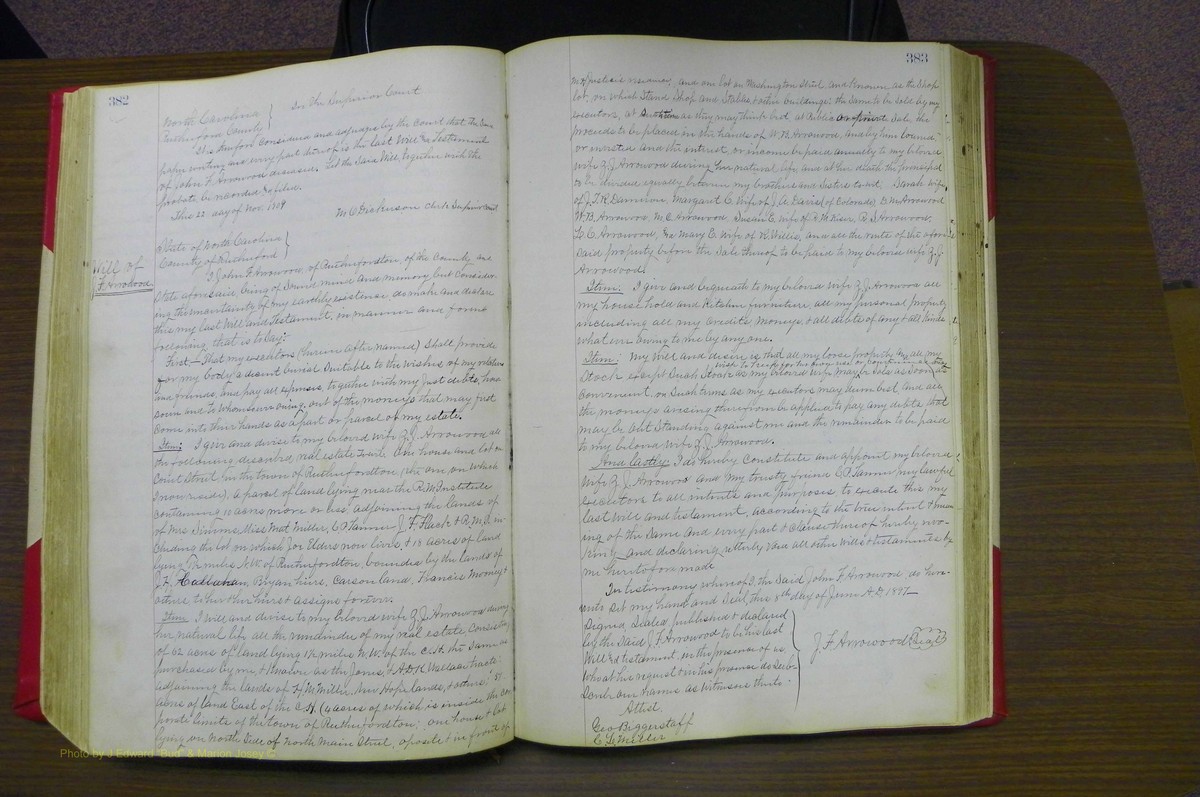 382
North Carolina } In the Superior Court
Rutherford County }
It is therefore considered and adjudged by the Court that the said
paper writing and every part thereof is the last Will & Testament
of John F. Arrowood deceased. Let the said Will together with the
probate be recorded & filed.
This 22 day of Nov. 1909
M O Dickerson Clerk Superior Court
Will of
F. Arrowood
State of North Carolina }
County of Rutherford }
I John F Arrowood, of Rutherfordton, of the County and
State aforesaid being of sound mind and memory but consider-
ing the uncertainty of my earthly existence, do make and declare
this my last Will and Testament, in manner and form
following that is to say:
First,— That my executors (herein after named) shall provide
for my body a decent burial suitable to the wishes of my relations
and friends, and pay all expenses together with my just debts, how-
soever and to whomsoever owing, out of the moneys that may first
come into their hands as a part or parcel of my estate.
Item: I give and devise to my beloved wife Z. J. Arrowood all
the following described real estate to wit: One house and lot on
Court Street in the town of Rutherfordton, (the one on which
I now reside), a parcel of land lying near the R. M. Institute
containing 11 acres more or less adjoining the lands of
of Mrs Simms, Miss Mat Miller, C. P. Tanner J. F. Flack & R. M. I. in-
cluding the lot on which Joe Elders now lives, & 18 acres of land
lying 1½ miles N.W. of Rutherfordton, bounded by the lands of
J. F. Callahan, Bryan hire, Carson land, Francis Mooney &
others to her & her heirs & assigns forever.
Item: I will and devise to my beloved wife Z. J. Arrowood during
her natural life all the remainder of my real estate consisting
of 62 acres of land lying 1½ miles N.W. of the C.H. the same as
purchased by me & known as the Jones, & A.D.K. Wallace tracts:
adjoining the lands of H. Mc Miller, New Hope lands, & others; 51
acres of land East of the C.H. (4 acres of which is inside the cor-
porate limits of the town of Rutherfordton; one house & lot
lying on North Side of North Main Street, oposite & in front of
383
M. Justice's residence, and one lot on Washington Street and known, as the Shop
lot, on which stand Shop and Stables & other buildings; the same to be sold by my
executors, at as they may think best, at Public or private Sale, the
proceeds to be placed in the hands of W. B. Arrowood, and by him loaned
or invested and the interest, or income be paid annually to my beloved
wife Z. J. Arrowood during her natural life, and at her death the principal
to be divided equally between my brothers and Sisters to wit, Sarah wife
of J. F. R. Dameron, Margaret C. Wife of J. A. Davis (of Colorado) G. W. Arrowood
W. B. Arrowood, M. C. Arrowood, Susan E. wife of B. H. B. S. Arrowood,
L. C. Arrowood, & Mary E. wife of R. Willis, and all the rents of the afore
said property before the Sale thereof to be paid to my beloved wife Z. J.
Arrowood.
Item: I give and bequeath to my beloved wife Z. J Arrowood all
my house hold and Kitchen furniture, all my personal property
including all my Credits, moneys, & all debts of any & all kinds
what ever owing to me by any one.
Item: My will and desire is that all my loose property any all my
Stock except Such Stock as my beloved wife may be sold as soon as
convenient, on Such terms as my executors may deem best and all
the moneys arising therefrom be applied to pay any debts that
may be out Standing against me and the remainder to be paid
to my beloved wife Z. J. Arrowood.
And lastly I do hereby constitute and appoint my beloved
wife Z J Arrowood and my trusty friend C C Tanner my lawful
executors to all intents and purposes to execute this my
last will and testament, according to the true intent & mean-
ing of the same and every part & clause thereof hereby revo-
king and declaring utterly void all other wills & testaments by
me heretofore made
In testimony whereof I, the said John F Arrowood, do here-
unto set my hand and Seal, this 8th day of June A.D. 1897—
Signed Sealed published & declared
by the said J. F Arrowood to be his last
Will & testament, in the presence of us,
who at his request & in his presence do sub-
scribe our names as witnesses thereto.
J F Arrowood (Seal)
Attest
Geo Biggerstaff
C. L. Miller
Photo by J Edward "Bud" & Marion Josey ©